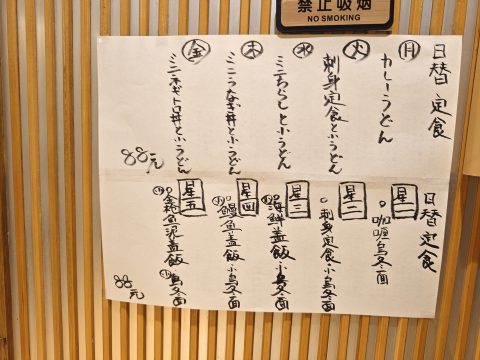 禁止吸烟
NO SMOKING
日替定食
月 カレーうどん
火 刺身定食と小うどん
水 ミニちらしと小うどん
木 ミニうなぎ丼と小うどん
金 ミニネギトロ丼と小うどん
88元
日替定食
星一 。咖喱烏冬面
星二 。刺身定食・小烏冬面
星三 小海鮮盖飯・小烏冬面
星四 小鰻魚盖飯・小烏冬面
星五 小金枪魚泥盖飯・小烏冬面
88元